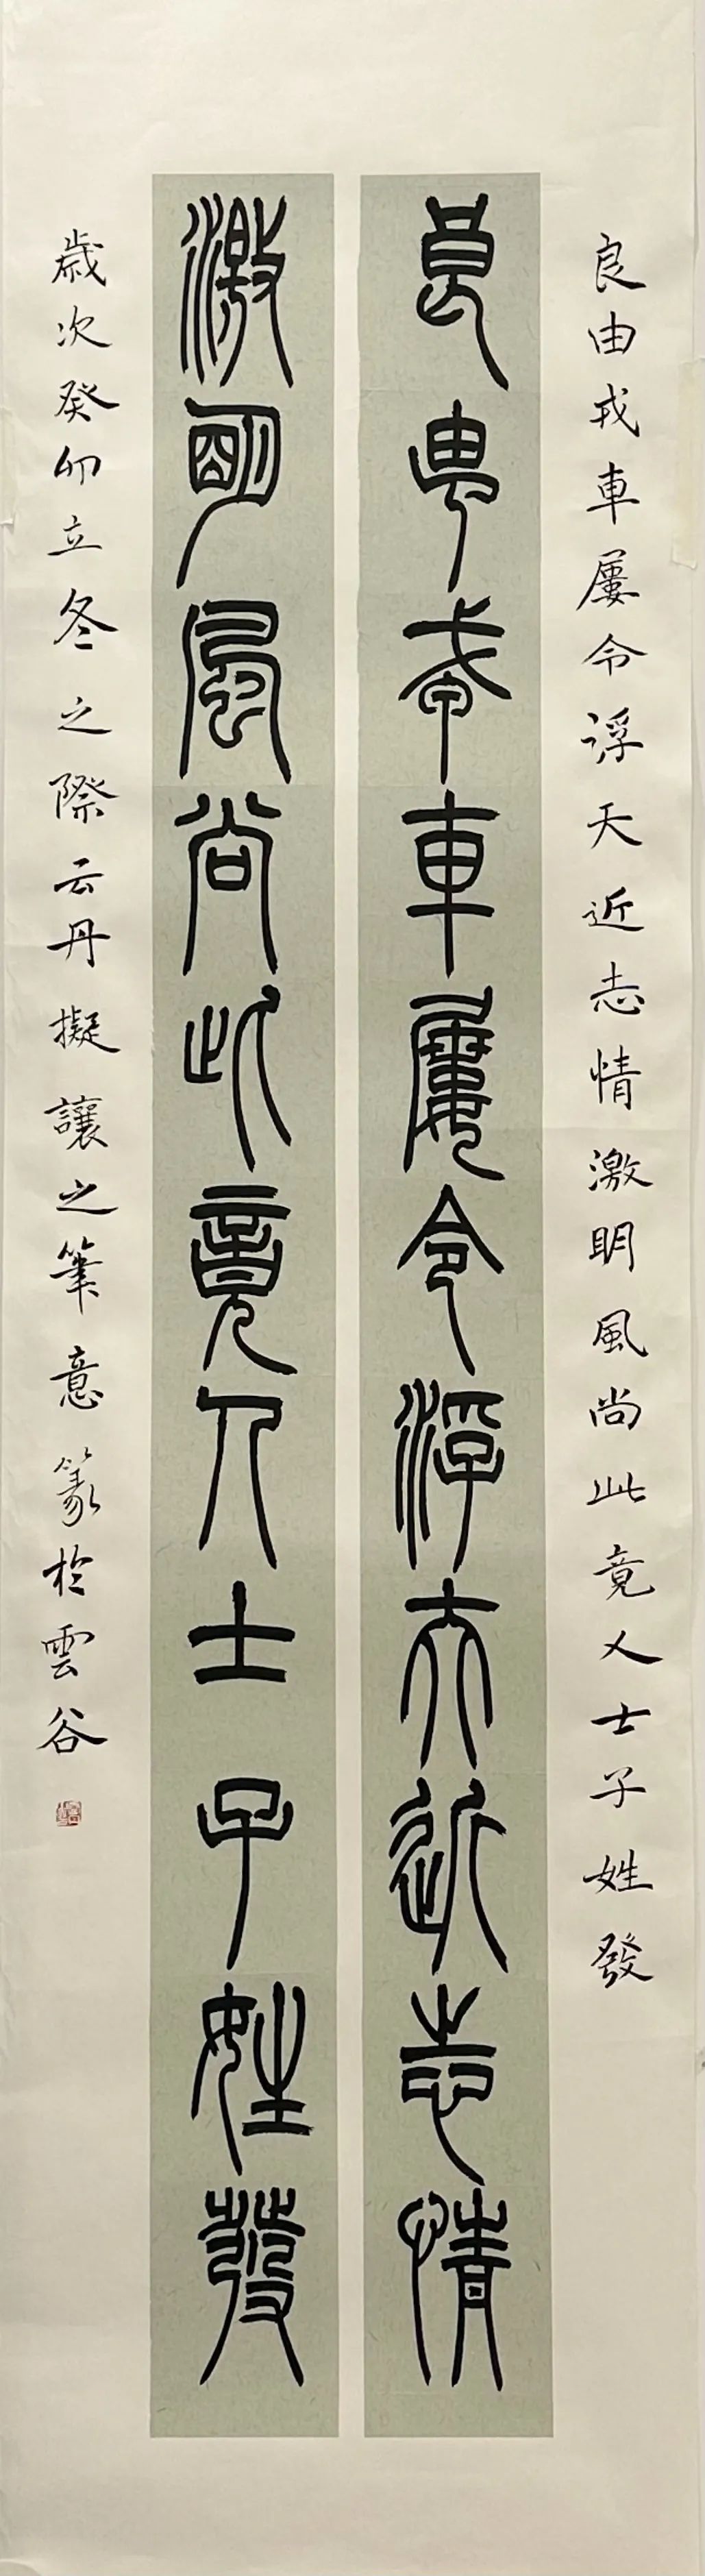 良由戎車屢令浮天近志情激明風尚此竟人士子姓發
良由戎車屢令浮天近志情
激明風尚此竟人士子姓發
歲次癸卯立冬之際云丹擬讓之筆意篆於雲谷